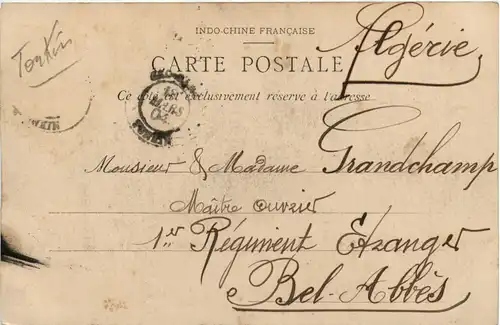 Tonkin
INDO-CHINE FRANÇAISE
Algérie
CARTE POSTALE
Ce côté est exclusivement réservé à l'adresse
18
MARS
04
TONKIN
Monsieur & Madame Grandchamp
Maître Ouvrier
1er Régiment Etranger
Bel-Abbès